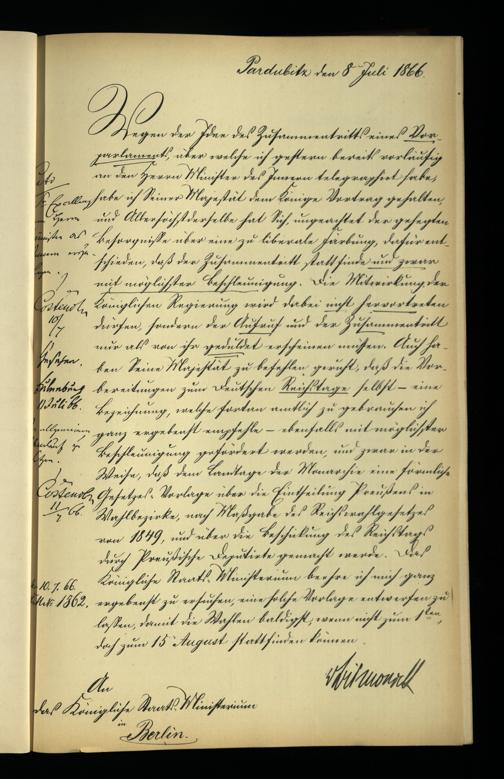 Pardubitz den 8 Juli 1866.
Wegen der Idee des Zusammentritts eines Vor-
parlaments, über welche ich gestern bereits vorläufig
an den Herrn Minister des Innern telegraphirt habe,
habe ich Seiner Majestät dem Könige Vortrag gehalten,
und Allerhöchstderselbe hat Sich, ungeachtet der gehegten
Besorgnisse über eine zu liberale Färbung, dafür ent-
schieden, daß der Zusammentritt stattfinde und zwar
mit möglichster Beschleunigung. Die Mitwirkung der
Königlichen Regierung wird dabei nicht hervortreten
dürfen, sondern der Aufruf und der Zusammentritt
nur als von ihr geduldet erscheinen müssen. Auch ha-
ben Seine Majestät zu befehlen geruht, daß die Vor-
bereitungen zum Deutschen Reichstage selbst – eine
Bezeichnung, welche fortan amtlich zu gebrauchen ich
ganz ergebenst empfehle – ebenfalls mit möglichster
Beschleunigung gefördert werden, und zwar in der
Weise, daß dem Landtage der Monarchie eine förmliche
Gesetzes-Vorlage über die Eintheilung Preußens in
Wahlbezirke, nach Maßgabe des Reichswahlgesetzes
von 1849, und über die Beschickung des Reichstags
durch Preußische Deputirte gemacht werde. Das
Königliche Staats-Ministerium beehre ich mich ganz
ergebenst zu ersuchen, eine solche Vorlage entwerfen zu
lassen, damit die Wahlen baldigst, wenn nicht zum 1ten,
doch zum 15 August stattfinden können.
vBismarck
An
das Königliche Staats-Ministerium
in
Berlin.
Excellenz
Herrn
Costenoble
10/7
Gesehen.
Eulenburg
11 Juli 66.
Costenoble
11/7 66.
10. 7. 66.
1862.